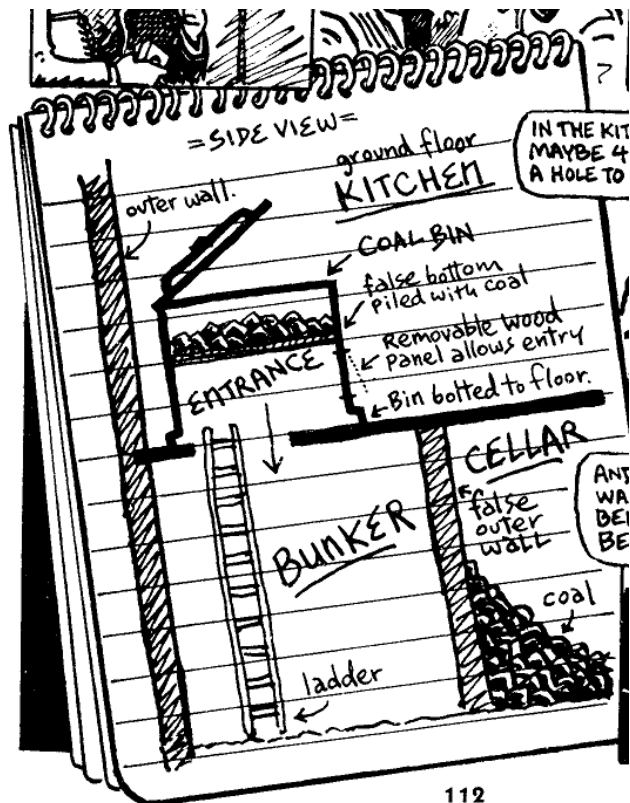 =SIDE VIEW=
ground floor
KITCHEN
outer wall.
COAL BIN
false bottom
piled with coal
Removable wood
panel allows entry
ENTRANCE
Bin bolted to floor.
CELLAR
false
outer
wall
BUNKER
coal
ladder
?
IN THE KIT
MAYBE 4
A HOLE TO
AND
WA
BE
BE
112